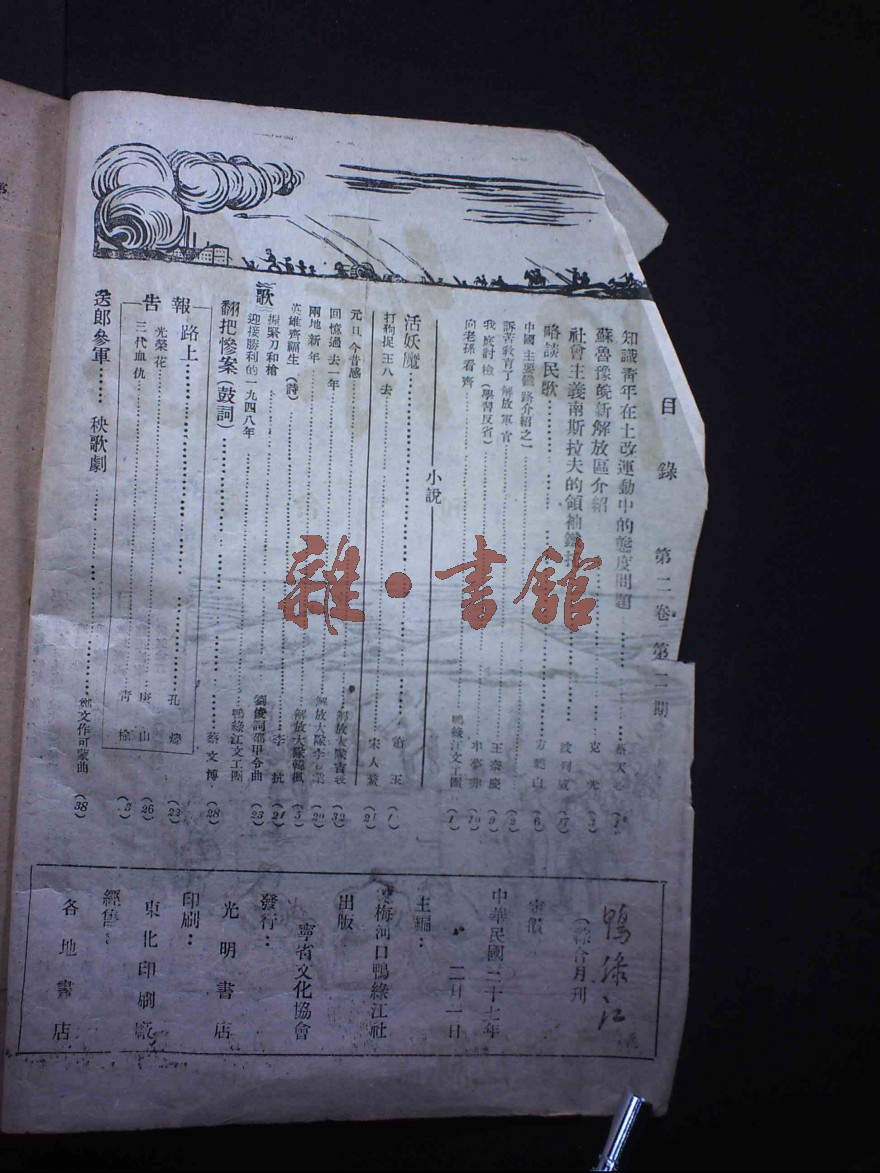 目錄 第二卷 第二期
知識青年在土改運動中的態度問題
蘇魯豫皖新解放區介紹 克光 (3)
社會主義南斯拉夫的領袖鐵托
略談民歌 (6)
中國主要鐵路介紹之一
訴苦教育了解放軍官 王泰慶 (9)
我底討檢(學習反省)
向老孫看齊 鴨綠江文工團 (1)
小說
活妖魔 (1)
打狗捉王八去 宋人 (21)
元旦今昔感 解放大隊 (32)
回憶過去一年 解放大隊李 (20)
兩地新年 解放大隊韓楓 (5)
英雄齊誕生(詩) 李 (21)
握緊刀和槍 劉俊詞邵甲令曲 (23)
迎接勝利的一九四八年 鴨綠江文工團
歌
翻把慘案(鼓詞) 蔡文博 (28)
報告
路上 孔 (22)
光榮花 山 (26)
三代血仇 青 (3)
送郎參軍 秧歌劇 鄭文作可蒙曲 (38)
鴨綠江
(綜合月刊
定價
中華民國三十七年
二月一日
主編:
梅河口鴨綠江社
出版
寧省文化協會
發行:
光明書店
印刷:
東北印刷廠
經售:
各地書店
雜·書館